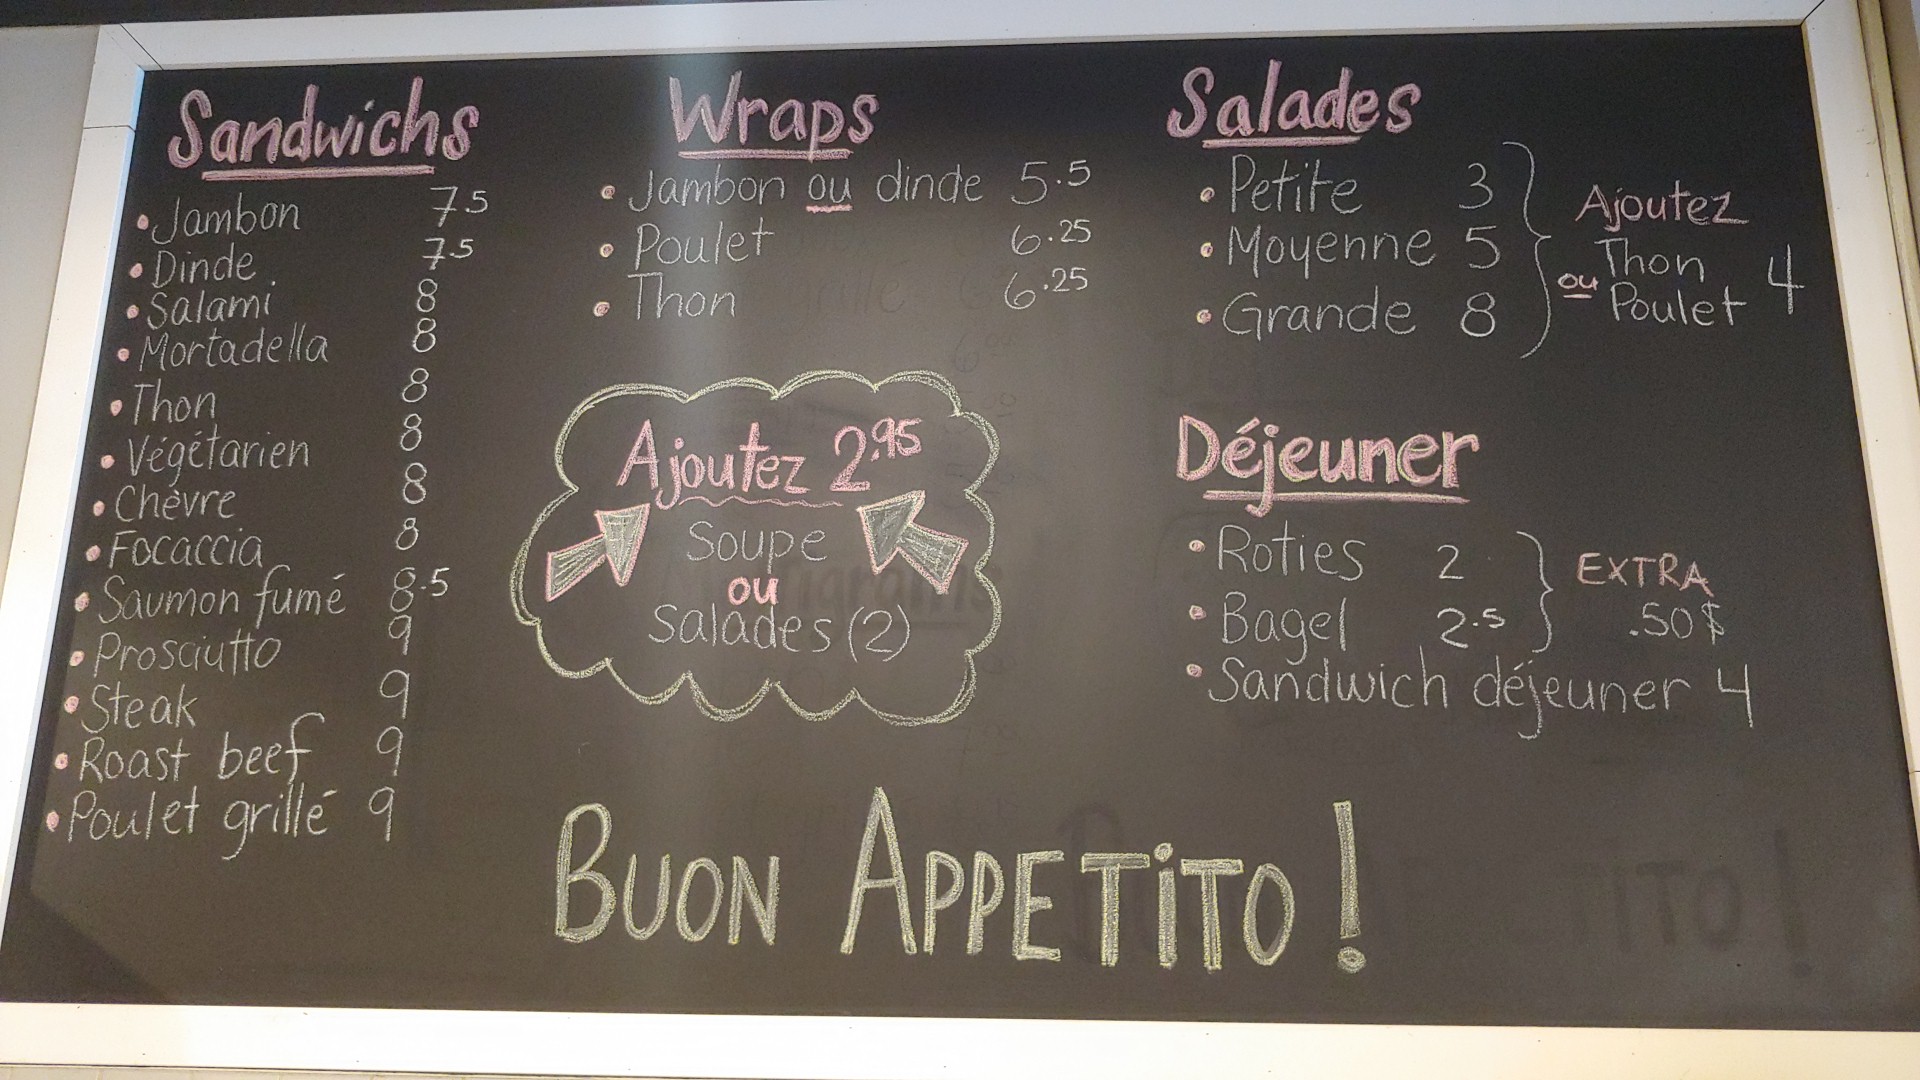 Sandwichs
• Jambon 7.5
• Dinde 7.5
• Salami 8
• Mortadella 8
• Thon 8
• Végétarien 8
• Chèvre 8
• Focaccia 8
• Saumon fumé 8.5
• Prosciutto 9
• Steak 9
• Roast beef 9
• Poulet grillé 9
Wraps
• Jambon ou dinde 5.5
• Poulet 6.25
• Thon 6.25
Ajoutez 2.95
Soupe
ou
Salades (2)
Salades
• Petite 3
• Moyenne 5
• Grande 8
Ajoutez
Thon
ou Poulet 4
Déjeuner
• Roties 2
• Bagel 2.5
EXTRA
.50$
• Sandwich déjeuner 4
BUON APPETITO!